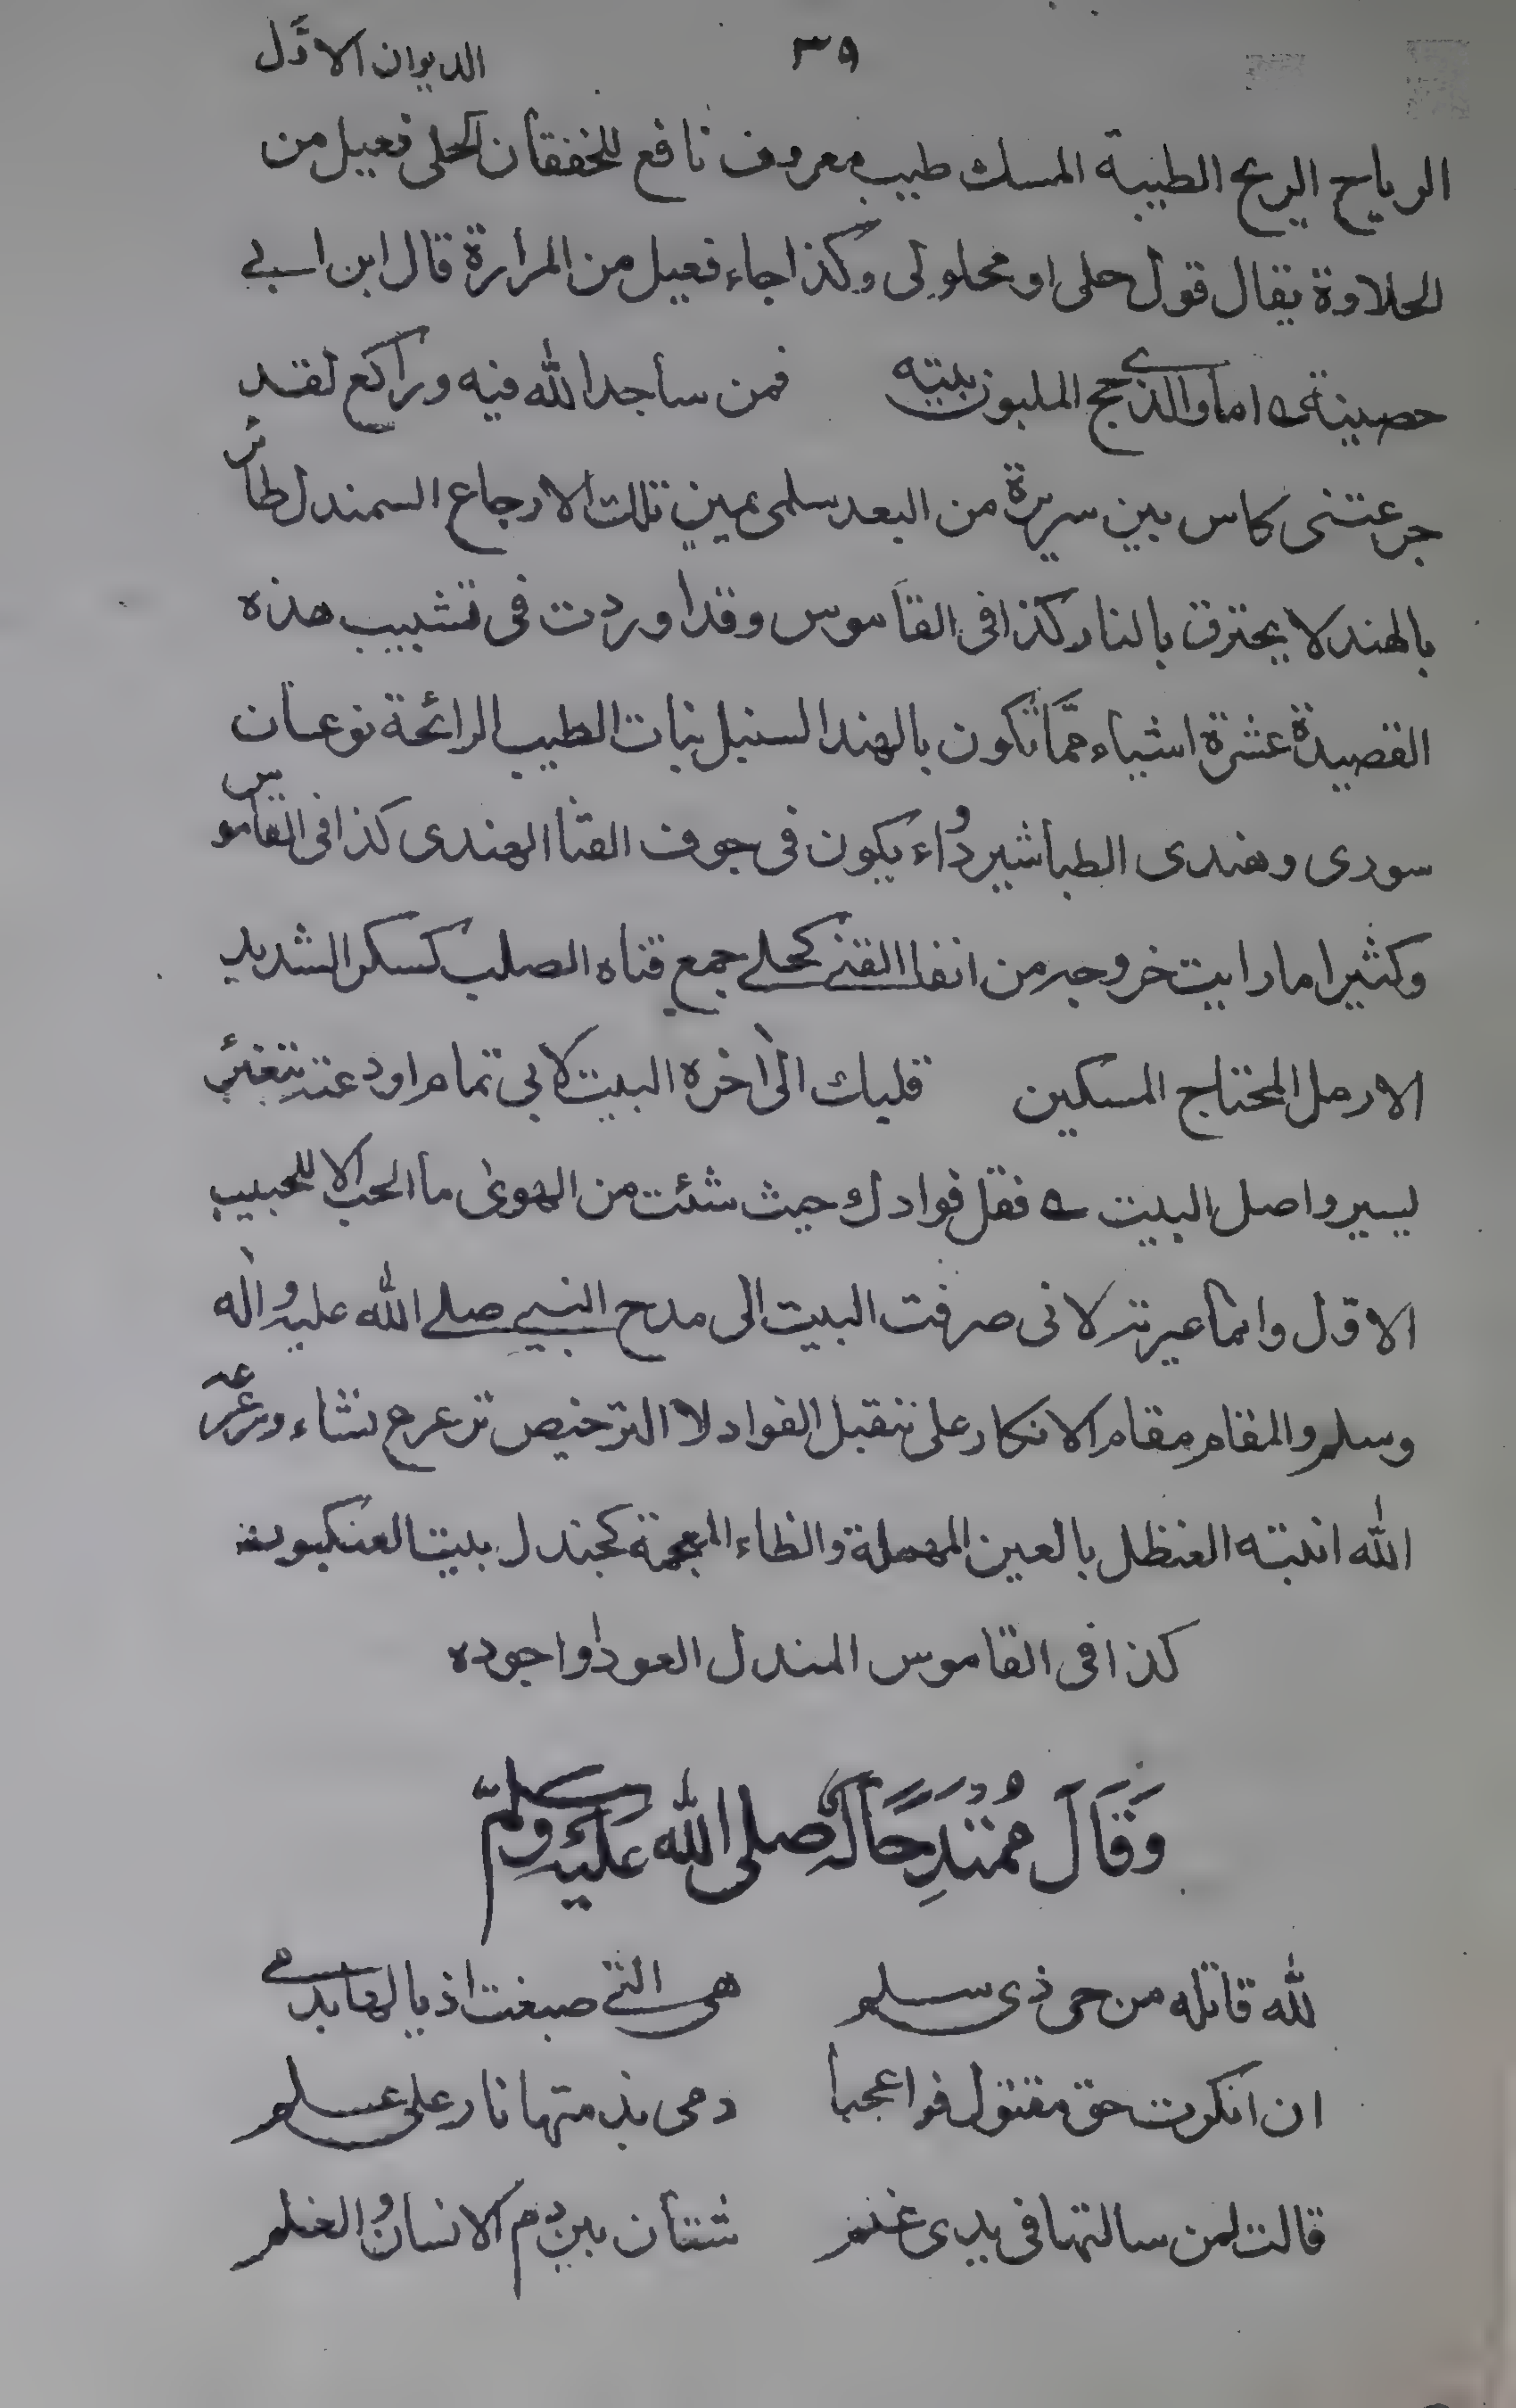 ٣٩ الديوان الاوّل
الرياح الريح الطيبة المسك طيب معروف نافع للخفقان الحلى فعيل من
الحلاوة يقال قول حلى او محلولى وكذا جاء فعيل من المرارة قال ابن ابى
حصينة اما والذى حج الملبون بيته فمن ساجد الله فيه وراكع لقد
جرعتنى كاس بين سريرة من البعد سلمى بين تلك الاجارع السمندل طائر
بالهند لا يحترق بالنار كذا فى القاموس وقد اوردت فى تشبيب هذه
القصيدة عشرة اشياء ممّا تكون بالهند السنبل نبات الطيب الرائحة نوعان
سورى وهندى الطباشير دواء يكون فى جوف القنا الهندى كذا فى القاموس
وكثيرا ما رايت خروجه من انفا القنى كحلى جمع قناه الصلب كسكر الشديد
الارمل المحتاج المسكين قلبك الى اخره البيت لابى تمام اودعته بتغيير
يسير واصل البيت فقل فوادك حيث شئت من الهوى ما الحب الا للحبيب
الاول وانما غيرته لانى صرفت البيت الى مدح النبى صلى الله عليه واله
وسلم والمقام مقام الانكار على تقبل الفواد لا الترخيص ترعرع نشاء ورعرعه
الله انبته العنظل بالعين المهملة والظاء المعجمة كجندل بيت العنكبوت
كذا فى القاموس المندل العود او اجوده
وَقَالَ مُمْتَدِحًا لَهُ صلى الله عَلَيْهِ وسلّم
لله قاتلة من حى ذى سلم هى التى صبغت اذيالها بدمى
ان انكرت حق مقتول فواعجبا دمى بذمتها نار على علم
قالت لمن سالتها فى يدى غنم شتان بين دم الانسان والغنم